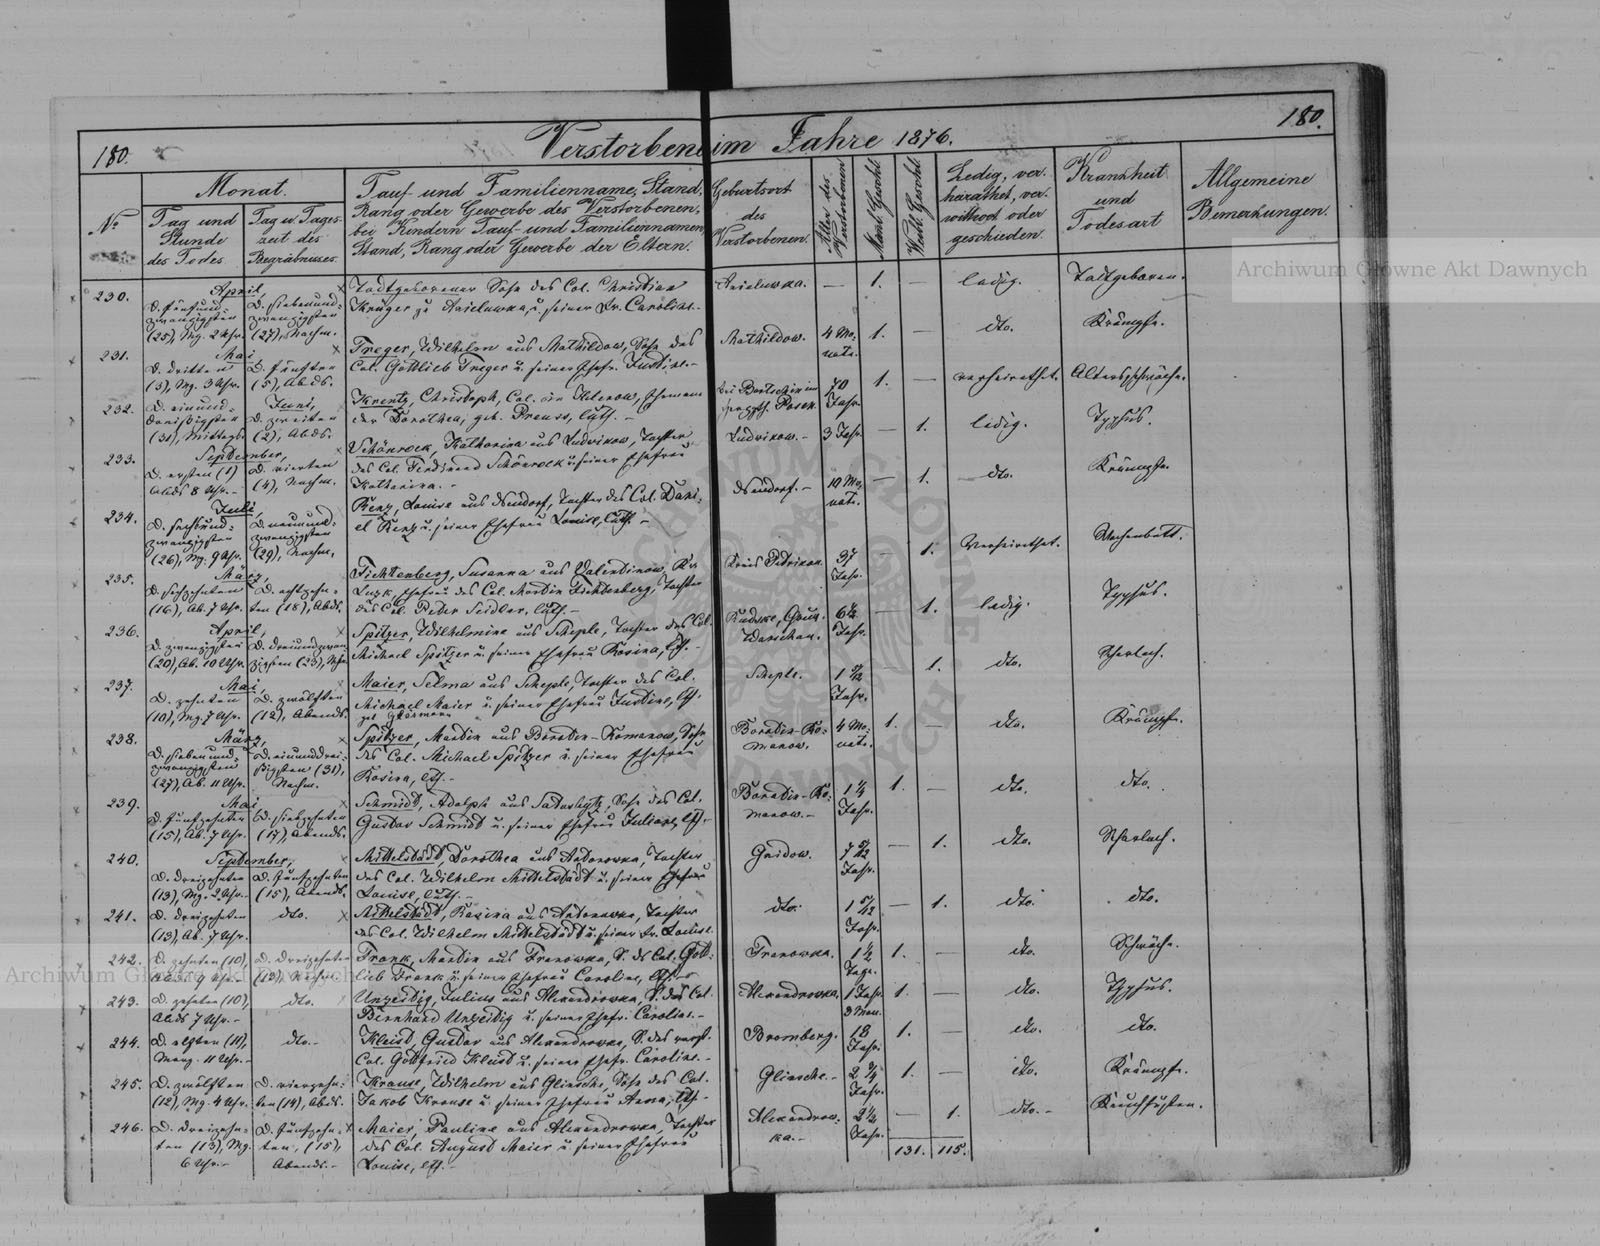 180.
180.
Verstorbene im Jahre 1876.
Nr.
Monat.
Tag und Stunde des Todes
Tag u. Tageszeit des Begräbnisses
Tauf- und Familienname, Stand,
Rang oder Gewerbe des Verstorbenen,
bei Kindern Tauf- und Familiennamen,
Stand, Rang oder Gewerbe der Eltern.
Geburtsort
des
Verstorbenen.
Alter des Verstorbenen
Männl. Geschl.
Weibl. Geschl.
Ledig, ver-
heirathet, ver-
wittwet oder
geschieden.
Krankheit
und
Todesart
Allgemeine
Bemerkungen.
230.
April,
D. fünfund-
zwanzigsten
(25), Mg. 2 Uhr.
D. siebenund-
zwanzigsten
(27), Nachm.
Todtgeborener Sohn des Col. Christian
Krüger zu
u. seiner Fr. Caroline.-
— 1. — ledig. Todtgeboren.
231.
Mai
D. dritten
(3), Mg. 3 Uhr.
D. fünften
(5), Abds.
Treger, Wilhelm aus Mathildow, Sohn des
Col. Gottlieb Treger u. seiner Ehefr. Justine.-
Mathildow. 4 Mo-
nate. 1. — dto. Krämpfe.
232.
D. einund-
dreißigsten
(31), Mittags.
Juni,
D. zweiten
(2), Abds.
Krentz, Christoph, Col. in
Ehemann
der Dorothea, geb. Preuss, luth. -
Posen.
70
Jahr. 1. — verheirathet. Altersschwäche.
233.
September,
D. ersten (1)
Abds 8 Uhr.-
D. vierten
(4), Nachm.
Schönrock, Katharina aus Ludwikow, Tochter
des Col. Ferdinand Schönrock u. seiner Ehefrau
Katharina. -
Ludwikow.- 3 Jahr. — 1. ledig. Typhus.
234.
Juli,
D. sechsund-
zwanzigsten
(26), Mg. 9 Uhr.
D. neunund-
zwanzigsten
(29), Nachm.
Renz, Louise aus Neudorf, Tochter des Col. Dani-
el Renz u. seiner Ehefrau Louise, luth. -
Neudorf.- 10 Mo-
nate. — 1. dto. Krämpfe.
235.
März,
D. sechzehnten
(16), Ab. 7 Uhr.
D. achtzehn-
ten (18), Abds.
Fichtenberg, Susanna aus Valentinow, Kr.
Luzk, Ehefrau des Col. Martin Fichtenberg, Tochter
des Col. Peter Seidler, luth.-
Kreis Petrikau. 37
Jahr. — 1. Verheirathet. Wochenbett.
236.
April,
D. zwanzigsten
(20), Ab. 10 Uhr.
D. dreiundzwan-
zigsten (23),
Spitzer, Wilhelmine aus Scheple, Tochter des Col.
Michael Spitzer u. seiner Ehefrau Rosina, lth. -
Warschau. 6½
Jahr. — 1. ledig. Typhus.
237.
Mai,
D. zehnten
(10), Mg. 7 Uhr.
D. zwölften
(12), Abends.
Maier, Selma aus Scheple, Tochter des Col.
Michael Maier u. seiner Ehefrau Justine, lth.
Scheple.
Jahr. — 1. dto. Scharlach.
238.
März,
D. siebenund-
zwanzigsten
(27), Ab. 11 Uhr.
D. einunddrei-
ßigsten (31),
Nachm.
Spitzer, Martin aus Boratin-Romanow, Sohn
des Col. Michael Spitzer u. seiner Ehefrau
Rosina, lth.-
Boratin-Ro-
manow. 4 Mo-
nate. 1. — dto. Krämpfe.
239.
Mai
D. fünfzehnten
(15), Ab. 7 Uhr.
D. siebzehnten
(17), Abends.
Schmidt, Adolph aus
Sohn des Col.
Gustav Schmidt u. seiner Ehefrau Juliane, lth.-
Boratin-Ro-
manow.- 1¼
Jahr. 1. — dto. dto.
240.
September,
D. dreizehnten
(13), Mg. 2 Uhr.
D. fünfzehnten
(15), Abends.
Mittelstädt, Dorothea aus Antonowka, Tochter
des Col. Wilhelm Mittelstädt u. seiner Ehefrau
Louise, luth.-
Jahr. — 1. dto. Scharlach.
241.
D. dreizehnten
(13), Ab. 7 Uhr.
dto.
Mittelstädt, Rosina aus Antonowka, Tochter
des Col. Wilhelm Mittelstädt u. seiner Fr. Louise.
dto.
Jahr. — 1. dto. dto.
242.
D. zehnten (10),
Abds. 9 Uhr.-
D. dreizehnten
(13), Nachm.
Frank, Martin aus Franowka, S. des Col. Gott-
lieb Frank u. seiner Ehefrau Caroline, lth.-
Franowka. 1½
Tage. 1. — dto. Schwäche.
243.
D. zehnten (10),
Abds 7 Uhr.-
dto.
Unzeidig, Julius aus Alexandrowka, S. des Col.
Bernhard Unzeidig u. seiner Ehefr. Caroline.-
Alexandrowka. 1 Jahr
3 Mon. 1. — dto. Typhus.
244.
D. elften (11),
Morg. 11 Uhr.-
dto.-
Kleist, Gustav aus Alexandrowka, S. des verst.
Col. Gottfried Kleist u. seiner Ehefr. Caroline.-
Bromberg. 18
Jahr. 1. — dto. dto.
245.
D. zwölften
(12), Mg. 4 Uhr.
D. vierzehn-
ten (14), Abds.
Krause, Wilhelm aus Glinsche, Sohn des Col.
Jakob Krause u. seiner Ehefrau Anna, lth.-
Glinsche.-
Jahr. 1. — dto. Krämpfe.
246.
D. dreizehn-
ten (13), Mg.
6 Uhr.-
D. fünfzehn-
ten, (15),
Abends.-
Maier, Pauline aus Alexandrowka, Tochter
des Col. August Maier u. seiner Ehefrau
Louise, lth.-
Alexandrow-
ka.- 2½
Jahr. — 1. dto.- Keuchhusten.
131. 115.
Archiwum Główne Akt Dawnych
Archiwum Główne Akt Dawnych